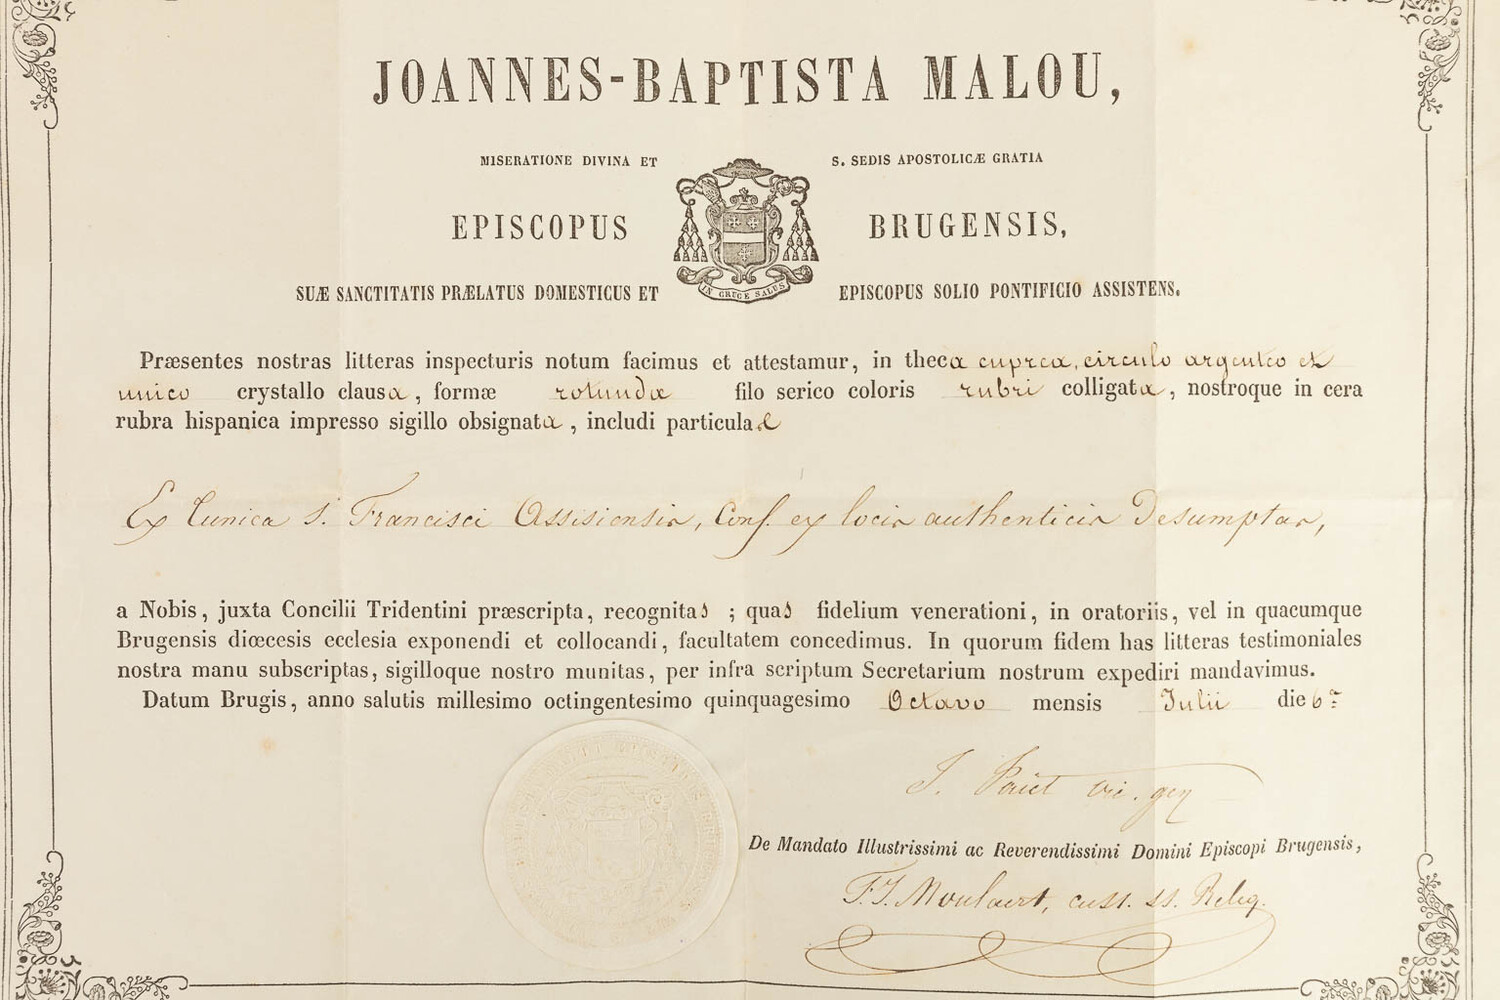 JOANNES-BAPTISTA MALOU,
MISERATIONE DIVINA ET S. SEDIS APOSTOLICÆ GRATIA
EPISCOPUS BRUGENSIS,
SUÆ SANCTITATIS PRÆLATUS DOMESTICUS ET EPISCOPUS SOLIO PONTIFICIO ASSISTENS.
IN CRUCE SALUS
Præsentes nostras litteras inspecturis notum facimus et attestamur, in theca cuprea, circulo argenteo et
unico crystallo clausa, formæ rotundæ filo serico coloris rubri colligata, nostroque in cera
rubra hispanica impresso sigillo obsignata, includi particulas
Ex tunica S. Francisci Assisiensis, Conf. ex locis authenticis Desumptas,
a Nobis, juxta Concilii Tridentini præscripta, recognitas ; quas fidelium venerationi, in oratoriis, vel in quacumque
Brugensis diœcesis ecclesia exponendi et collocandi, facultatem concedimus. In quorum fidem has litteras testimoniales
nostra manu subscriptas, sigilloque nostro munitas, per infra scriptum Secretarium nostrum expediri mandavimus.
Datum Brugis, anno salutis millesimo octingentesimo quinquagesimo Octavo mensis Julii die 6ª
J. vic. gen
De Mandato Illustrissimi ac Reverendissimi Domini Episcopi Brugensis,
F. J. Moulaert, cust. ss. Reliq.